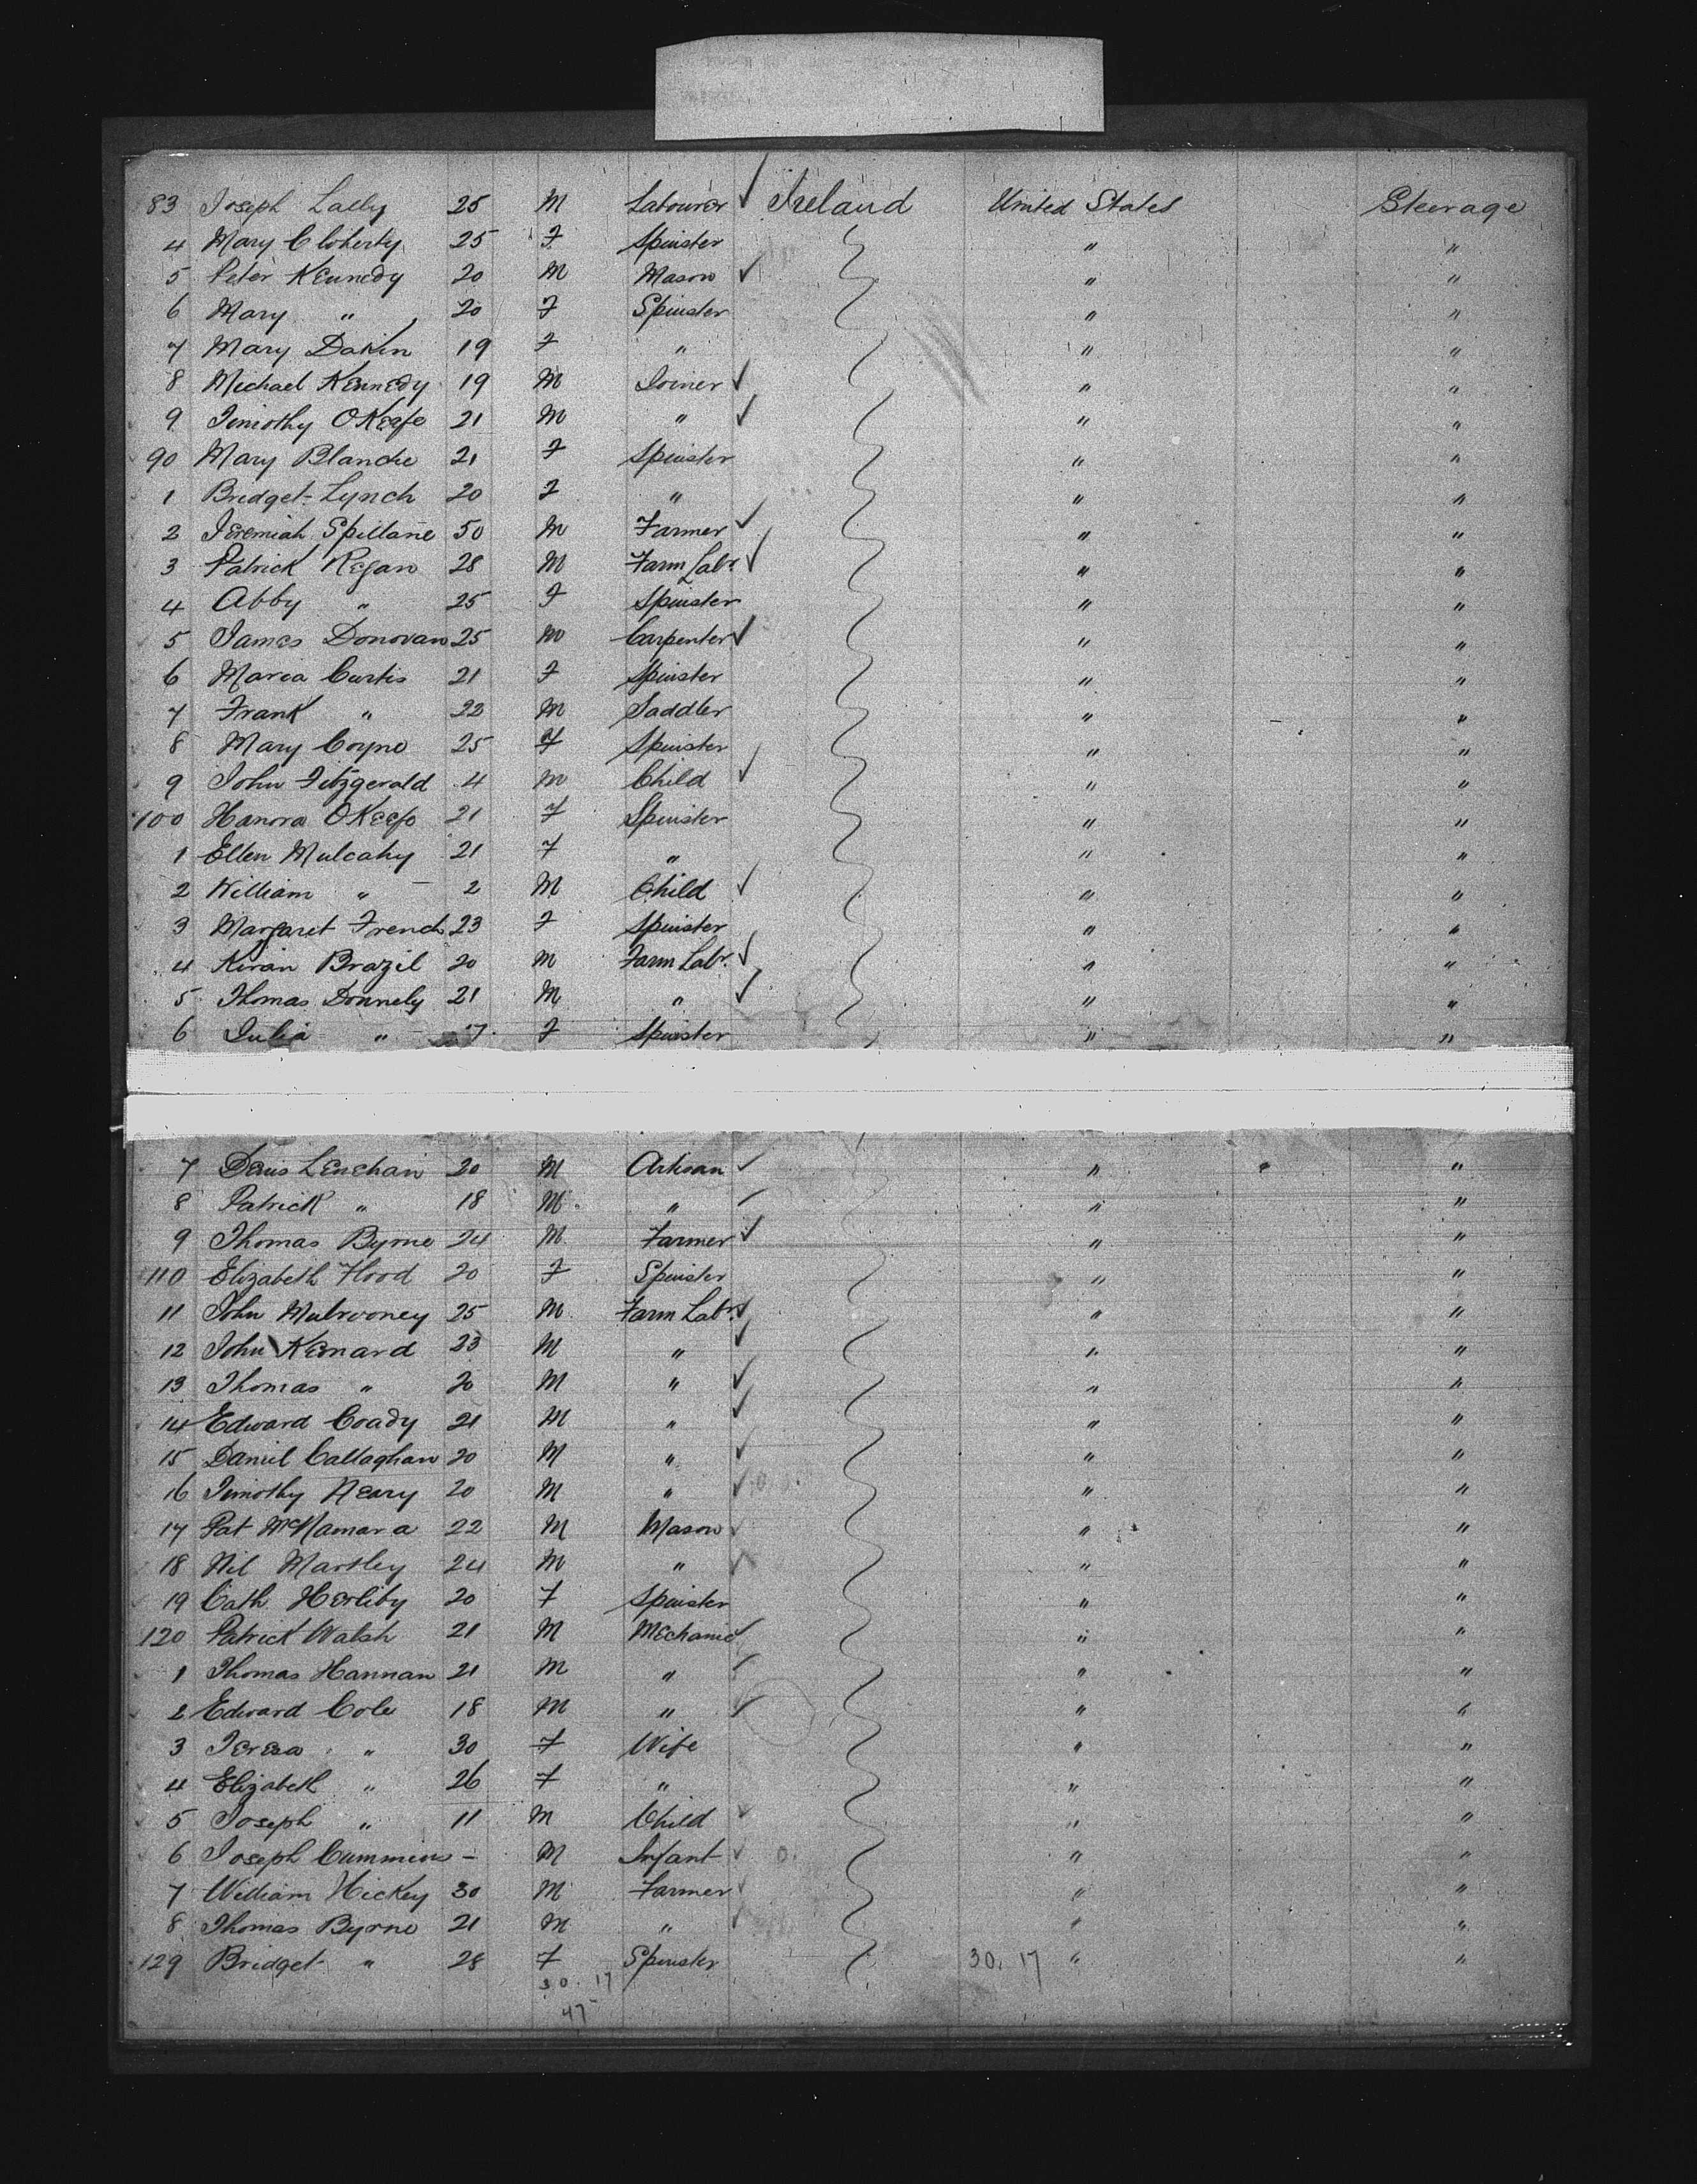 83 Joseph Lally 25 M Labourer ✓ Ireland United States Steerage
4 Mary Cloherty 25 F Spinster " "
5 Peter Kennedy 20 M Mason ✓ " "
6 Mary " 20 F Spinster " "
7 Mary Dakin 19 F " " "
8 Michael Kennedy 19 M Joiner ✓ " "
9 Timothy OKeefe 21 M " ✓ " "
90 Mary Blanche 21 F Spinster " "
1 Bridget Lynch 20 F " " "
2 Jeremiah Spillane 50 M Farmer ✓ " "
3 Patrick Regan 28 M Farm Labr. ✓ " "
4 Abby " 25 F Spinster " "
5 James Donovan 25 M Carpenter ✓ " "
6 Maria Curtis 21 F Spinster " "
7 Frank " 22 M Saddler " "
8 Mary Coyne 25 F Spinster " "
9 John Fitzgerald 4 M Child ✓ " "
100 Hanora OKeefe 21 F Spinster " "
1 Ellen Mulcahy 21 F " " "
2 William " 2 M Child ✓ " "
3 Margaret French 23 F Spinster " "
4 Kiran Brazil 20 M Farm Labr. ✓ " "
5 Thomas Donnely 21 M " ✓ " "
6 Julia " F Spinster " "
7 Denis Lenehan 20 M Artisan ✓ " "
8 Patrick " 18 M " ✓ " "
9 Thomas Byrne 24 M Farmer ✓ " "
110 Elizabeth Flood 20 F Spinster " "
11 John Mulrooney 25 M Farm Labr. ✓ " "
12 John Kennard 23 M " ✓ " "
13 Thomas " 20 M " ✓ " "
14 Edward Coady 21 M " ✓ " "
15 Daniel Callaghan 20 M " ✓ " "
16 Timothy Neary 20 M " ✓ " "
17 Pat McNamara 22 M Mason ✓ " "
18 Nil Martley 24 M " ✓ " "
19 Cath. Herlihy 20 F Spinster " "
120 Patrick Walsh 21 M Mechanic ✓ " "
1 Thomas Hannan 21 M " ✓ " "
2 Edward Cole 18 M " ✓ " "
3 Teresa " 30 F Wife " "
4 Elizabeth " 26 F " " "
5 Joseph " 11 M Child ✓ " "
6 Joseph Cummins - M Infant ✓ " "
7 William Hickey 30 M Farmer ✓ " "
8 Thomas Byrne 21 M " ✓ " "
129 Bridget " 28 F Spinster 30. 17 " "
30. 17
47